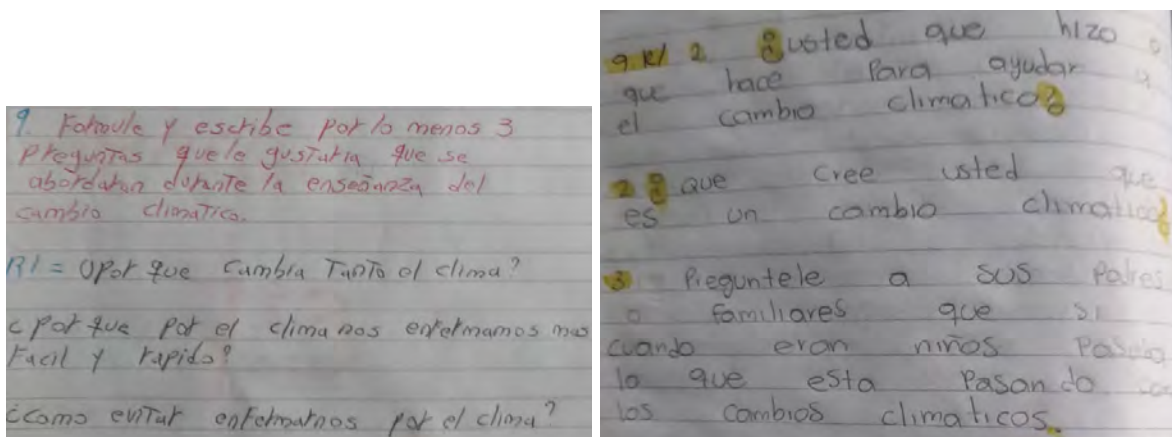 9. Formule y escribe por lo menos 3
preguntas que le gustaria que se
abordaran durante la enseñanza del
cambio climatico.
R/ = ¿Por que cambia tanto el clima?
¿por que por el clima nos enfermamos mas
facil y rapido?
¿como evitar enfermarnos por el clima?
9. R/ 2. ¿usted que hizo o
que hace para ayudar a
el cambio climatico?
2 ¿que cree usted que
es un cambio climatico?
3 Preguntele a sus Padres
o familiares que si
cuando eran niños Pasaba
lo que esta Pasando con
los cambios climaticos.